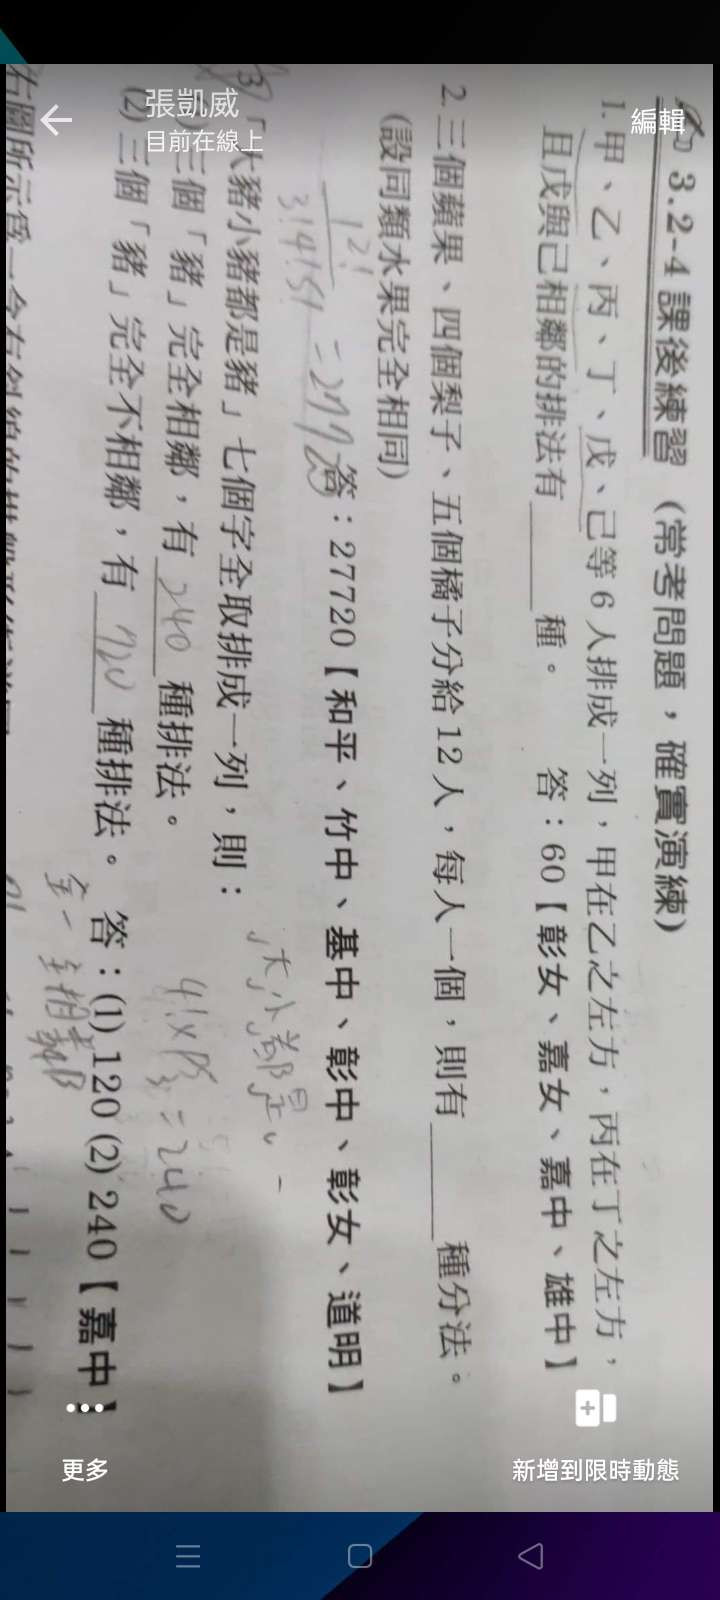 張凱威
目前在線上
編輯
3.2-4 課後練習（常考問題，確實演練）
1. 甲、乙、丙、丁、戊、己等 6 人排成一列，甲在乙之左方，丙在丁之左方，
且戊與己相鄰的排法有 ＿＿＿ 種。 答：60【彰女、嘉女、嘉中、雄中】
2. 三個蘋果、四個梨子、五個橘子分給 12 人，每人一個，則有 ＿＿＿ 種分法。
(設同類水果完全相同)
答：27720【和平、竹中、基中、彰中、彰女、道明】
12!
3!4!5! = 27720
3「大豬小豬都是豬」七個字全取排成一列，則：
大小都是
三個「豬」完全相鄰，有 240 種排法。
4!×P = 240
(2) 三個「豬」完全不相鄰，有 720 種排法。 答：(1) 120 (2) 240【嘉中】
全－全相鄰
右圖所示為一
更多
新增到限時動態